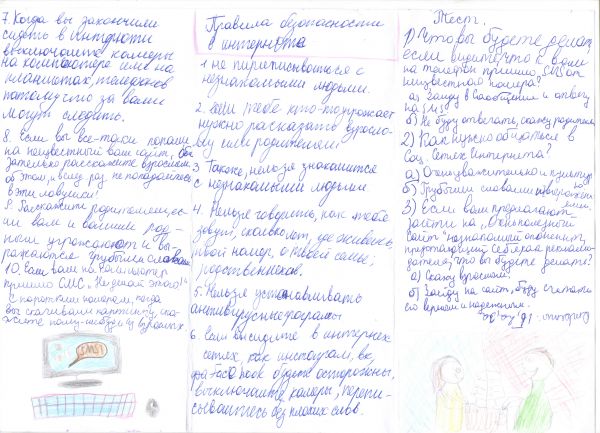 7. Когда вы закончили
сидеть в интернете
выключайте камеры
на компьютере или на
планшетах, телефонах
потому что за вами
могут следить.
8. Если вы все-таки попали
на неизвестный вам сайт,
зательно расскажите взрослым.
об этом, и в след. раз не попадайтесь
в эти ловушки!
9. Расскажите родителям, ес-
ли вам и вашим род-
ным угрожают и вы-
ражаются грубыми словами
10. Если вам на компьютер
пришло СМС, Не делай этого!"
с коротким номером, когда
вы скачивали картинку, ска-
жите кому-нибудь из взрослых.
SMS!
Правила безопасности
в интернете
1. не переписываться с
незнакомыми людьми.
2. если тебе кто-то угрожает
нужно рассказать взросло-
му или родителям!
3. Также, нельзя знакомится
с незнакомыми людьми
4. Нельзя говорить, как тебя
зовут, сколько лет, где живёшь,
твой номер, о твоей семье,
родственников.
5. Нельзя устанавливать
антивирусные програмы
6. Если вы сидите в интернет
сетях, как инстаграм, вк,
фа-face book будьте осторожны,
выключайте камеры, перепи-
сывайтесь без плохих слов.
Тест.
1) Что вы будете делать
если видите что к вам
на телефон пришло SMS от
неизвестного номера?
а) Зайду в Сообщения и отвечу
на SMS
б) Не буду отвечать, скажу родителям
2) Как нужно общаться в
Соц. Сетях Интернета?
а) Очень уважительно и культур
б) Грубыми словами и выражени
ями.
3) Если вам предлагают
зайти на „Очень полезной
Сайт" незнакомый оппонент,
представляющий себя как рекламо-
датель, что вы будете делать?
а) Скажу взрослым.
б) Зайду на сайт, буду считать
его верным и надежным.